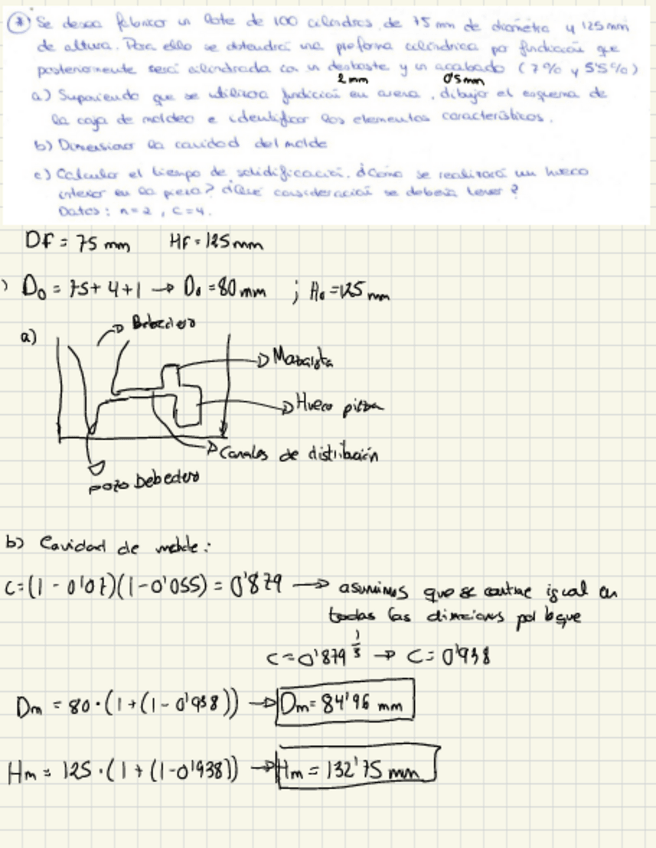 * Se desea fabricar un lote de 100 cilindros de 75 mm de diámetro y 125 mm
de altura. Para ello se obtendrá una preforma cilíndrica por fundición que
posteriormente será cilindrada con un desbaste y un acabado (7% y 5'5%)
2mm 0'5mm
a) Suponiendo que se utiliza fundición en arena, dibuja el esquema de
la caja de moldeo e identificar los elementos característicos.
b) Dimensionar la cavidad del molde
c) Calcular el tiempo de solidificación. ¿Cómo se realizará un hueco
interior en la pieza? ¿Qué consideración se deberá tener?
Datos: n=2, C=4.
Df = 75 mm Hf = 125 mm
) D0 = 75 + 4 + 1 → D0 = 80 mm ; H0 = 125 mm
a)
Bebedero
Mazarota
Hueco pieza
Canales de distribución
pozo bebedero
b) Cavidad de molde:
C = (1 - 0'07)(1 - 0'055) = 0'879 → asumimos que se contrae igual en
todas las direcciones por lo que
C = 0'879^(1/3) → C = 0'938
Dm = 80 · (1 + (1 - 0'938)) → Dm = 84'96 mm
Hm = 125 · (1 + (1 - 0'938)) → Hm = 132'75 mm